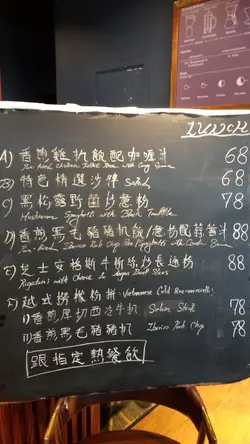 LUNCH
A) 香煎雞扒飯配咖喱汁 68
Pan-fried Chicken Fillet Rice with Curry Sauce
B) 特色精選沙律 Salad 68
C) 黑松露野菌炒意粉 78
Mushroom Spaghetti with Black Truffle
D) 香煎黑毛豬豬扒飯/意粉配蒜蓉汁 88
Pan-fried Iberico Pork Chop Rice/Spaghetti with Garlic Sauce
E) 芝士安格斯牛筋絲炒長通粉 88
Rigatoni with Cheese &
F) 越式撈檬粉拼 Vietnamese Cold Rice-vermicelli
1) 香煎厚切西冷牛扒 Sirloin Steak 78
2) 香煎黑毛豬豬扒 Iberico Pork Chop 78
跟指定熱餐飲